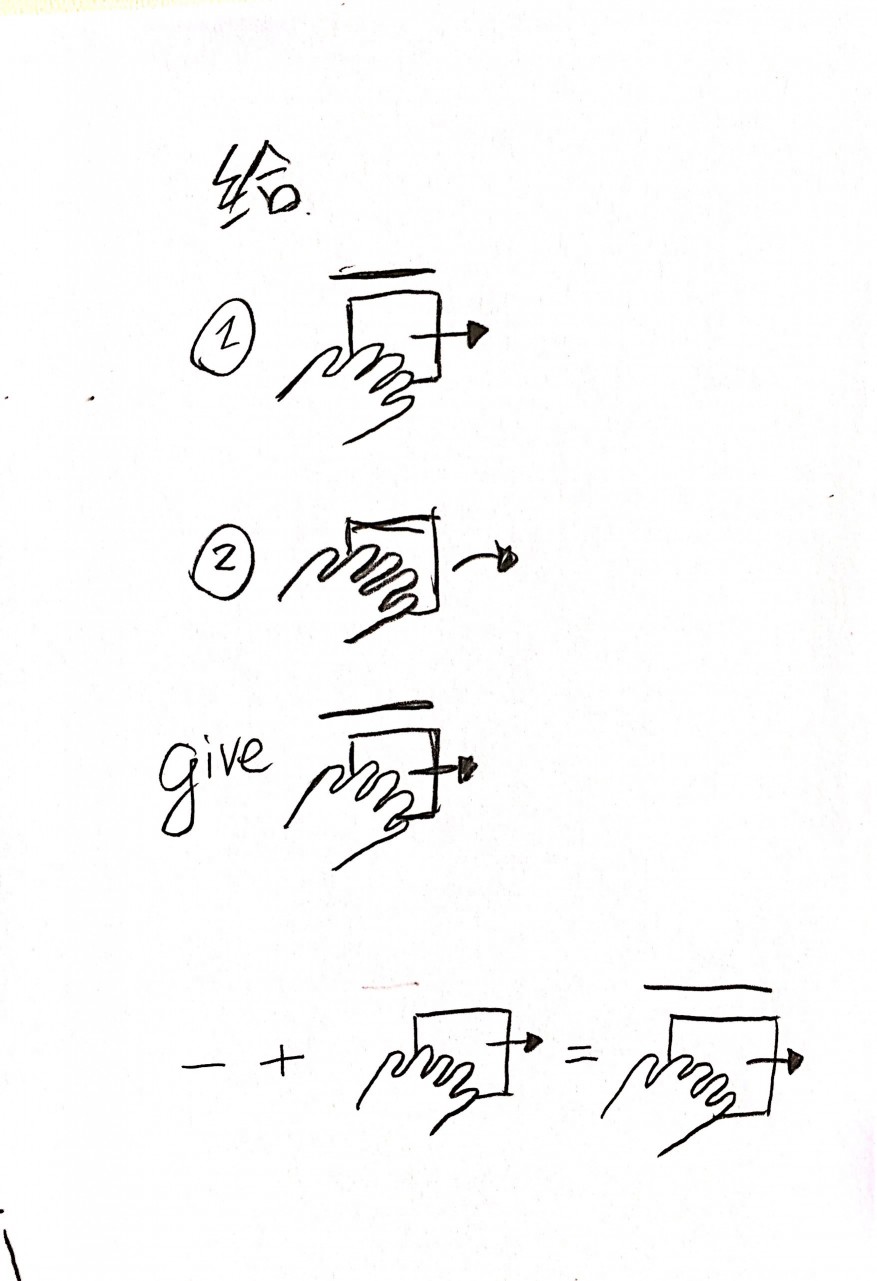 给
①
②
give
— + =